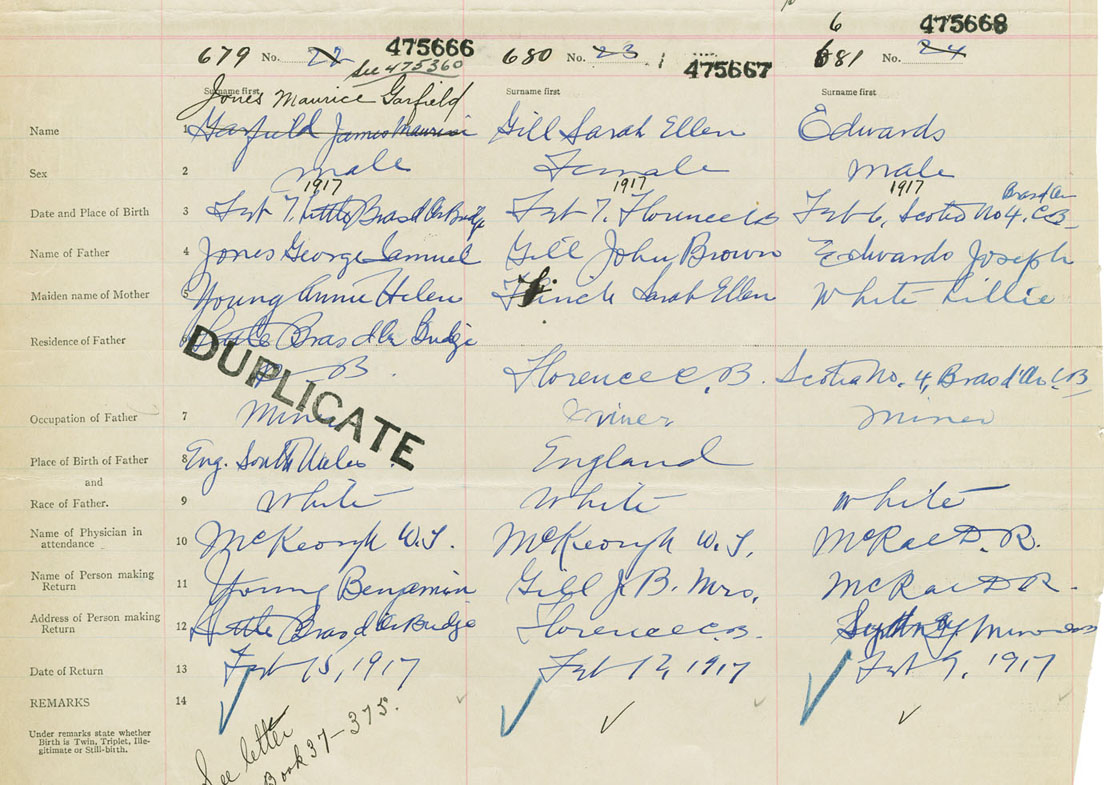 6
679 No. 22 475666 680 No. 23 475667 681 No. 24 475668
See 475360
Surname first Surname first Surname first
Jones Maurice Garfield
Name 1 Garfield James Maurice Gill Sarah Ellen Edwards
Sex 2 male Female male
1917 1917 1917
Date and Place of Birth 3 Feb 7, Little Bras d'Or Bridge Feb 7. Florence CB Feb 6, Scotia No 4, Bras d'Or C.B
Name of Father 4 Jones George Samuel Gill John Brown Edwards Joseph
Maiden name of Mother 5 Young Annie Helen Finch Sarah Ellen White Lillie
Residence of Father 6 Little Bras d'Or Bridge
C. B. Florence C.B. Scotia No. 4, Bras d'Or C.B
DUPLICATE
Occupation of Father 7 Miner miner miner
Place of Birth of Father 8 Eng. South Wales England
and
Race of Father. 9 white white white
Name of Physician in
attendance 10 McKeough W.J. McKeough W.J. McRae D.R.
Name of Person making
Return 11 Young Benjamin Gill J.B. Mrs. McRae D R.
Address of Person making
Return 12 Little Bras d'Or Bridge Florence C.B. Sydney Mines
Date of Return 13 Feb 15, 1917 Feb 12, 1917 Feb 9, 1917
REMARKS 14
Under remarks state whether
Birth is Twin, Triplet, Ille-
gitimate or Still-birth.
See letter
Book 37-375.